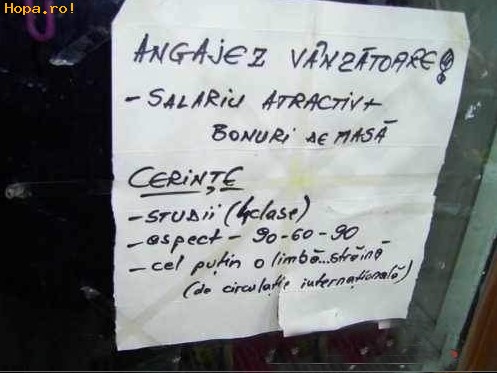 Hopa.ro!
ANGAJEZ VÂNZĂTOARE!
- SALARIU ATRACTIV +
BONURI DE MASĂ
CERINȚE
- STUDII (4 clase)
- aspect - 90-60-90
- cel puțin o limbă...străină
(de circulație internațională)